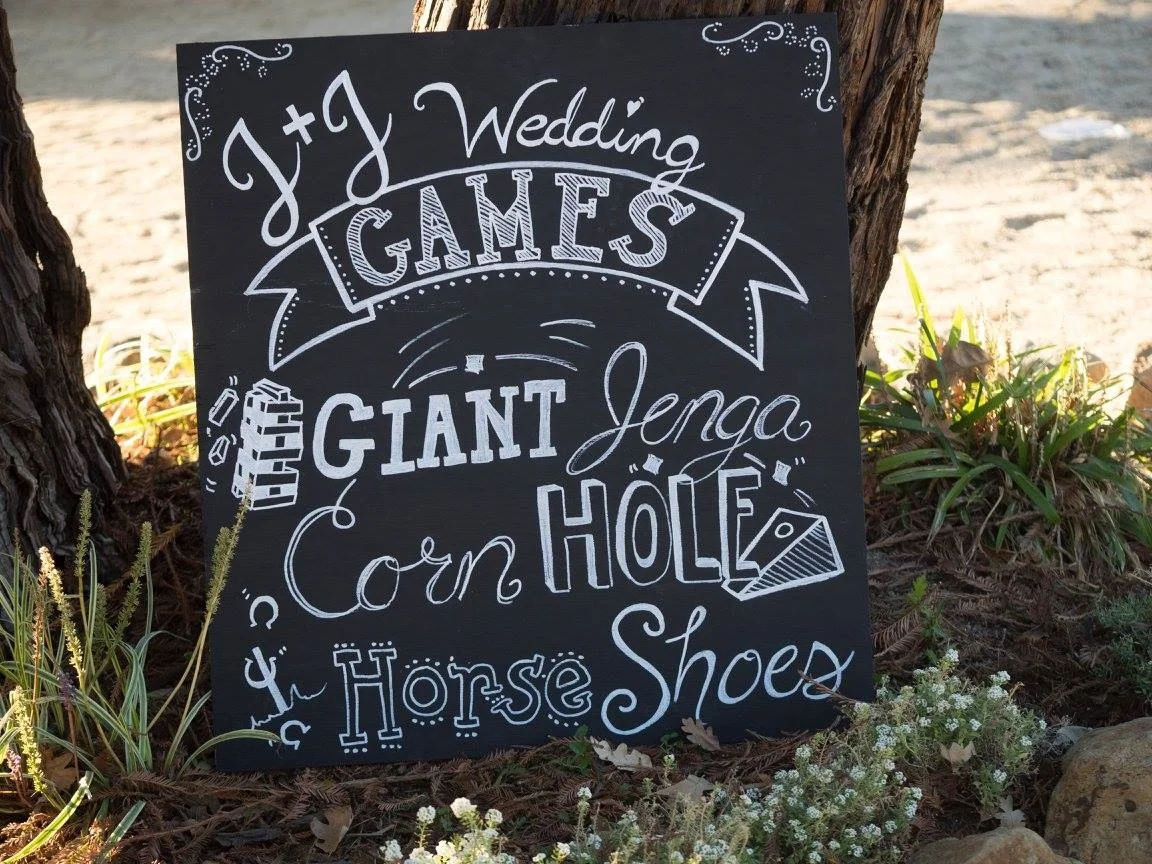 J+J Wedding
GAMES
GIANT Jenga
Corn HOLE
Horse Shoes